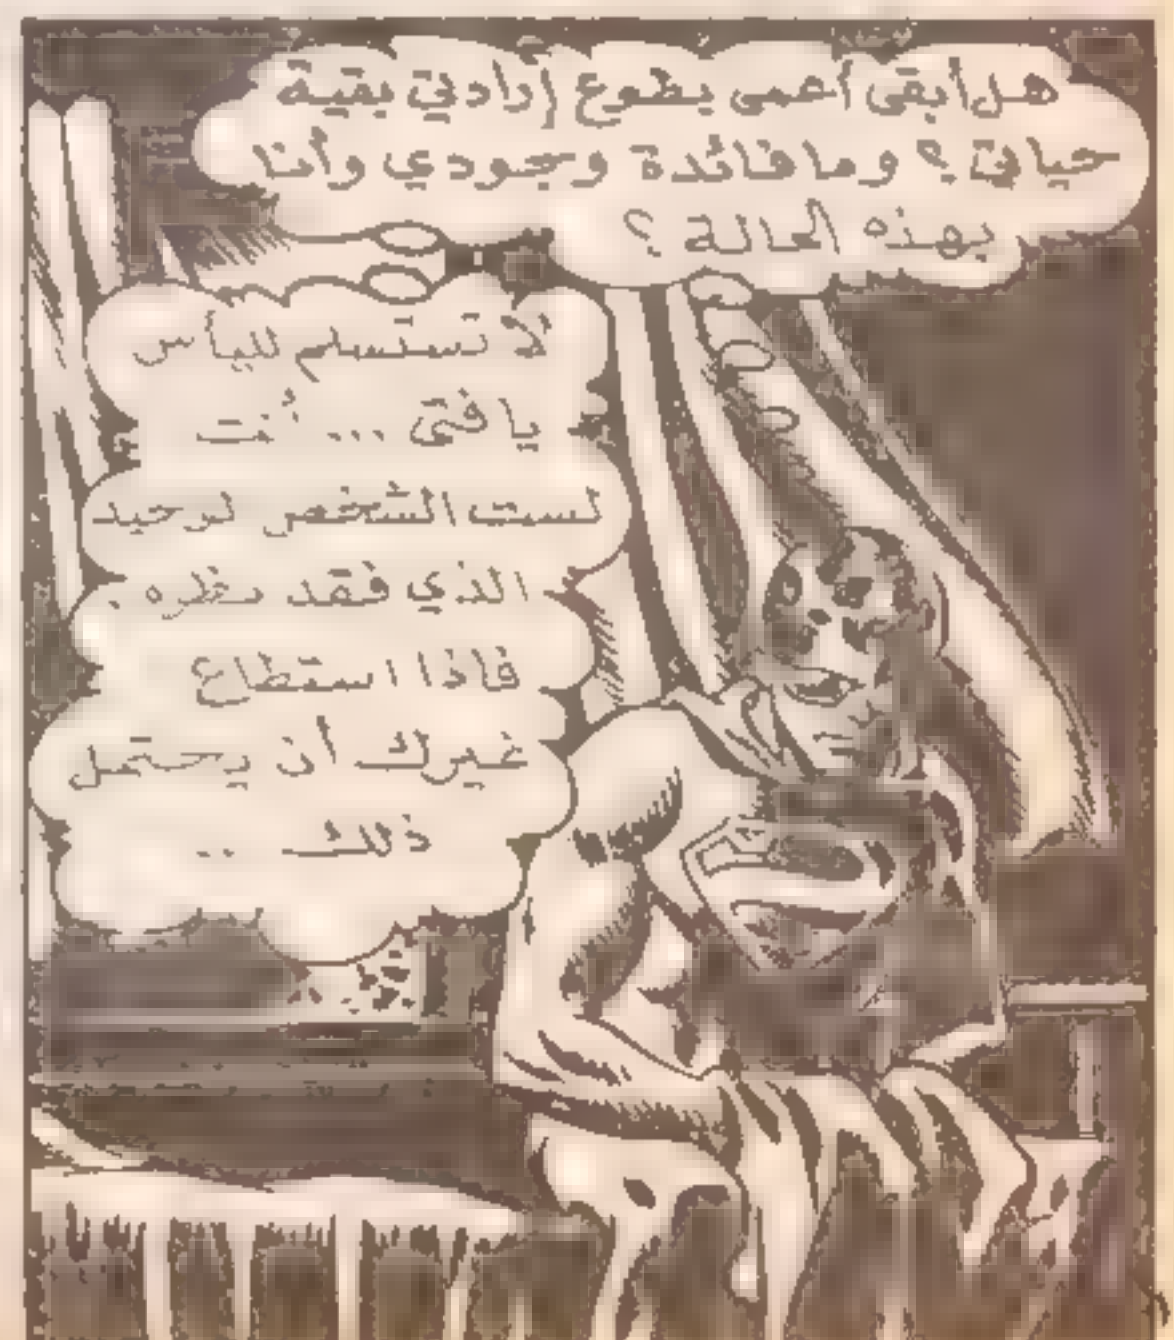 هل أبقى أعمى بطوع إرادتي بقية
حياتي؟ وما فائدة وجودي وأنا
بهذه الحالة؟
لا تستسلم لليأس
يا فتى ... أنت
لست الشخص لوحيد
الذي فقد نظره .
فاذا استطاع
غيرك أن يحتمل
ذلك ..